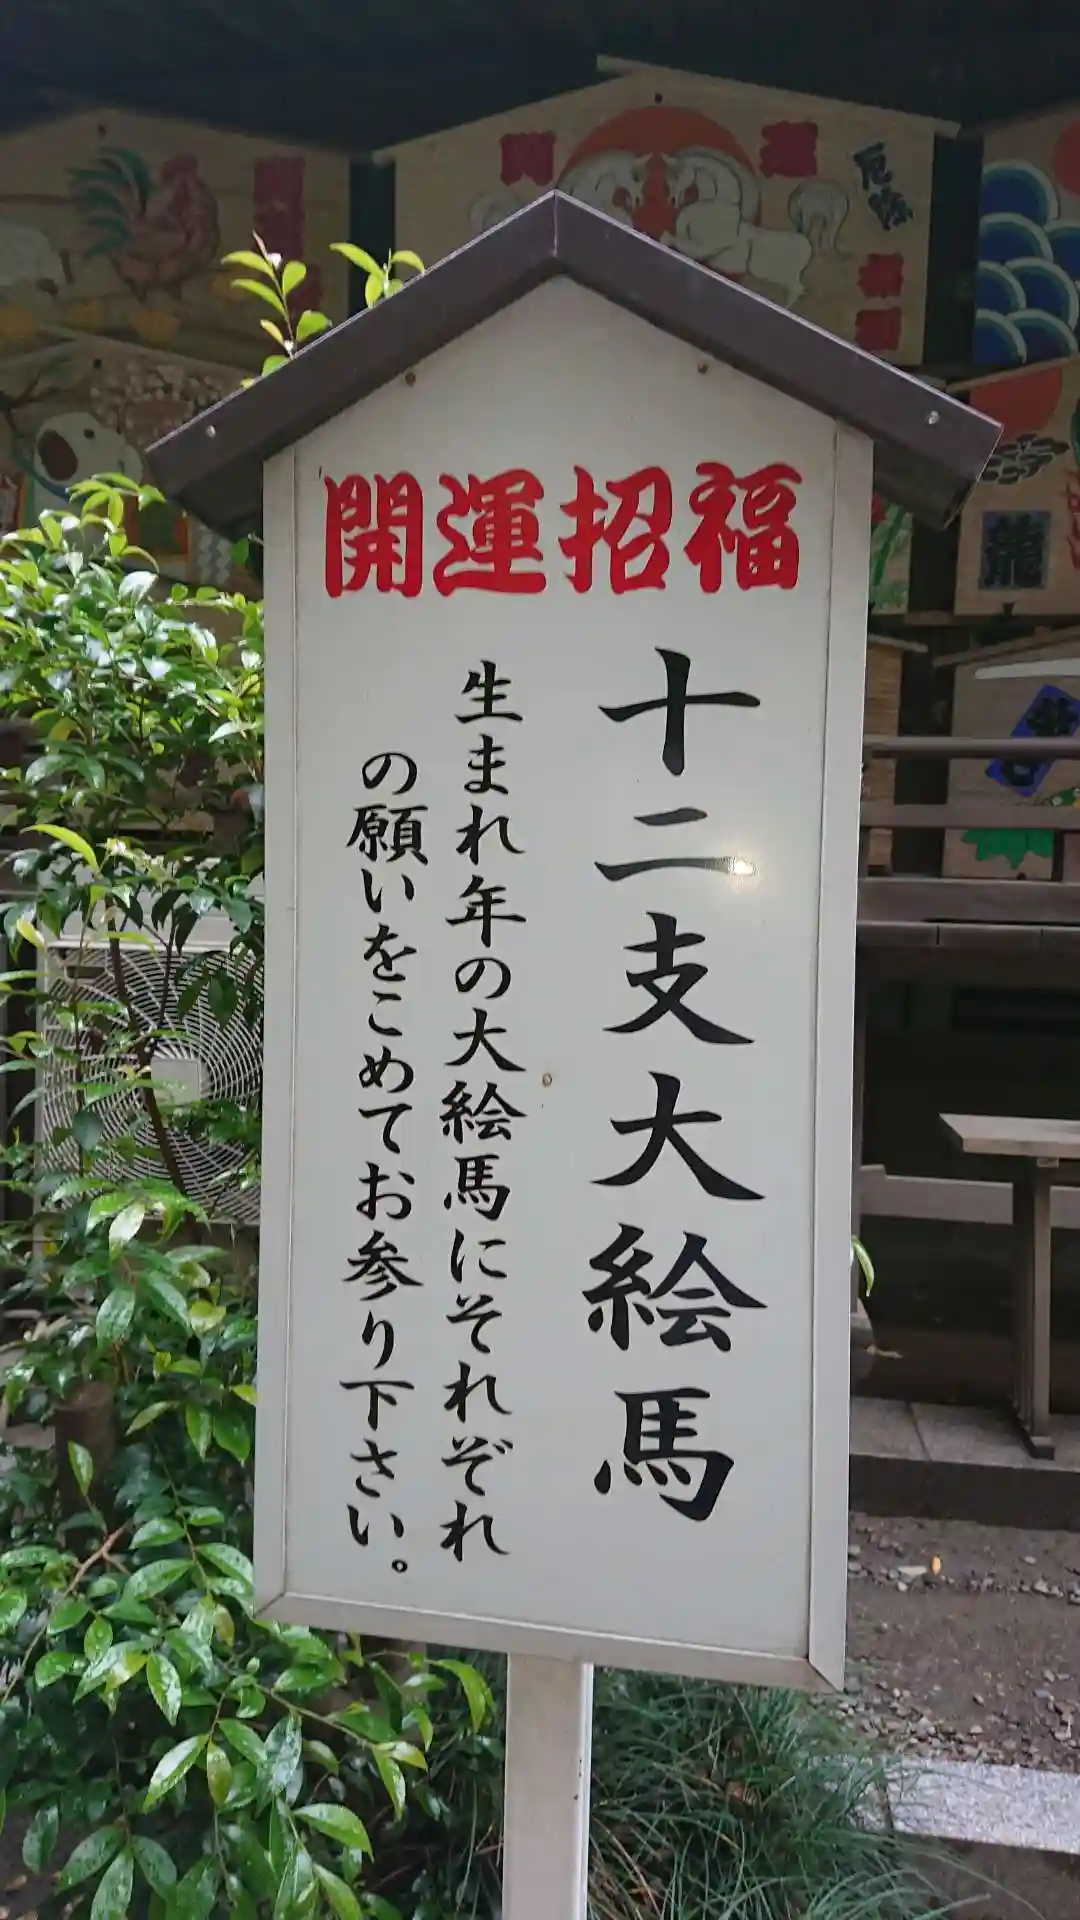 開運招福
十二支大絵馬
生まれ年の大絵馬にそれぞれ
の願いをこめてお参り下さい。
開
運
厄除
龍